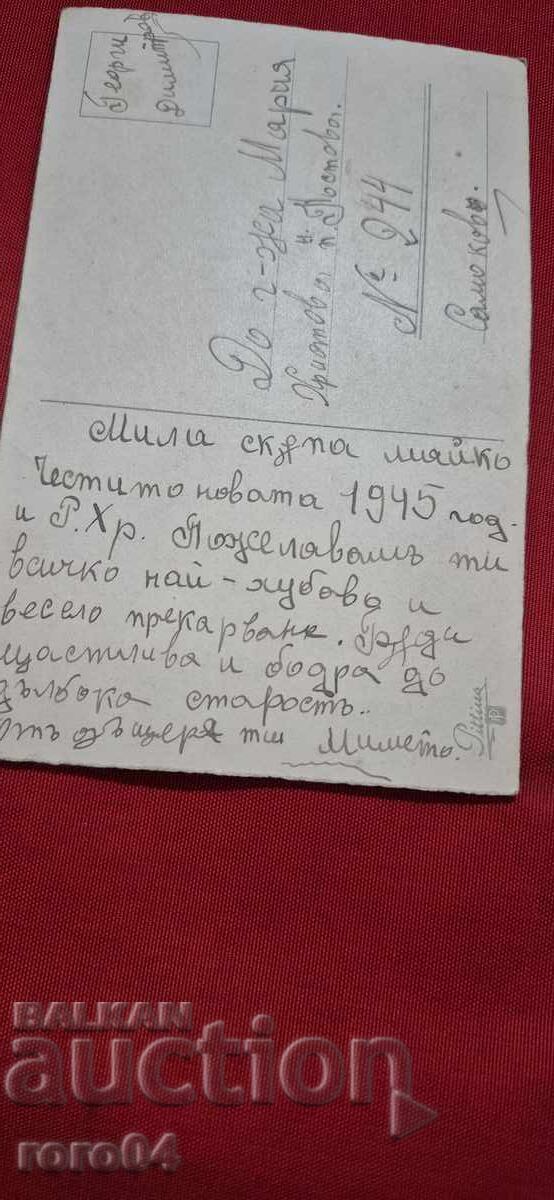 Георги
Димитров
До г-жа Мария
Христова п. Постова.
№ 244
Самоковъ.
Мила скѫпа майко
Честито новата 1945 год.
и Р.Хр. Пожелавамъ ти
всичко най-хубаво и
весело прекарване. Бѫди
щастлива и бодра до
дълбока старость..
Отъ дъщеря ти Мимето.
Pittina
BALKAN
auction
roro04